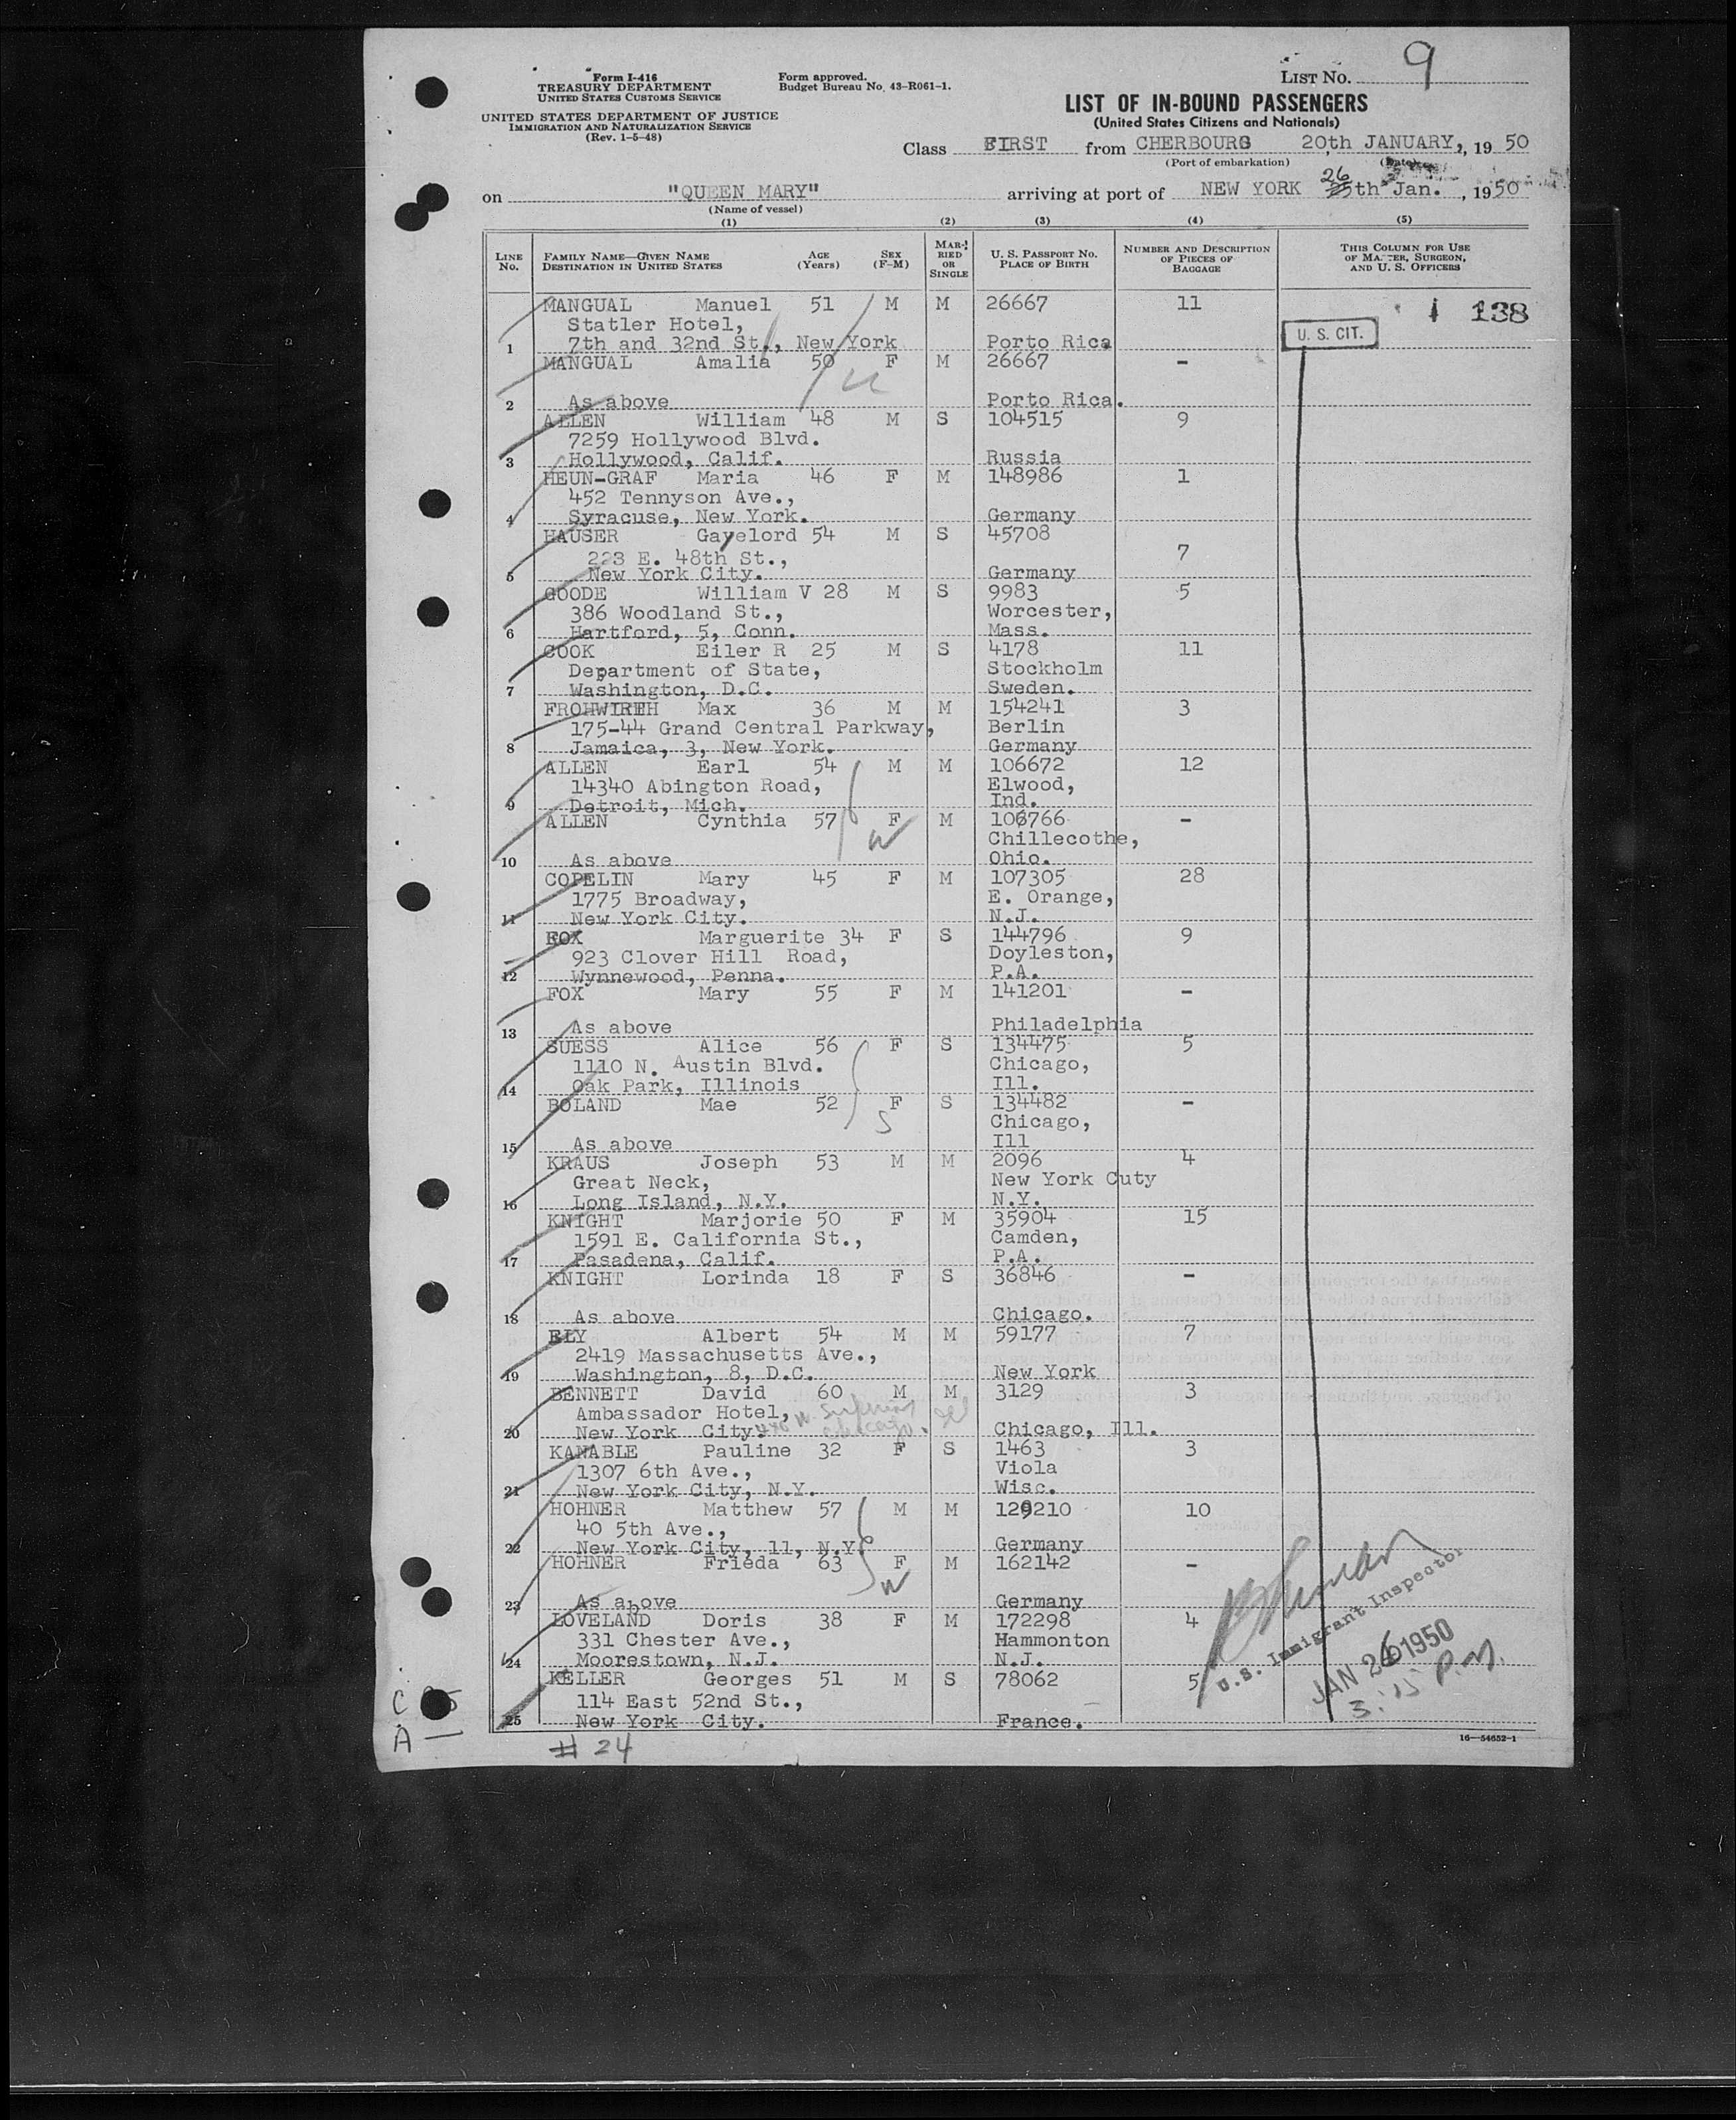 Form I-416
TREASURY DEPARTMENT
UNITED STATES CUSTOMS SERVICE
UNITED STATES DEPARTMENT OF JUSTICE
IMMIGRATION AND NATURALIZATION SERVICE
(Rev. 1-5-48)
Form approved.
Budget Bureau No. 43-R061-1.
LIST NO. 9
LIST OF IN-BOUND PASSENGERS
(United States Citizens and Nationals)
Class FIRST from CHERBOURG 20th JANUARY, 1950
(Port of embarkation) (Date)
on "QUEEN MARY" arriving at port of NEW YORK 26th Jan., 1950
(Name of vessel)
(1) (2) (3) (4) (5)
LINE NO. FAMILY NAME—GIVEN NAME DESTINATION IN UNITED STATES AGE (Years) SEX (F-M) MARRIED OR SINGLE U. S. PASSPORT NO. PLACE OF BIRTH NUMBER AND DESCRIPTION OF PIECES OF BAGGAGE THIS COLUMN FOR USE OF MASTER, SURGEON, AND U. S. OFFICERS
MANGUAL Manuel 51 M M 26667 11 138
Statler Hotel, U. S. CIT.
1 7th and 32nd St., New York Porto Rica
MANGUAL Amalia 50 F M 26667 -
2 As above Porto Rica.
ALLEN William 48 M S 104515 9
7259 Hollywood Blvd.
3 Hollywood, Calif. Russia
HEUN-GRAF Maria 46 F M 148986 1
452 Tennyson Ave.,
4 Syracuse, New York. Germany
HAUSER Gayelord 54 M S 45708
223 E. 48th St., 7
5 New York City. Germany
GOODE William V 28 M S 9983 5
386 Woodland St., Worcester,
6 Hartford, 5, Conn. Mass.
COOK Eiler R 25 M S 4178 11
Department of State, Stockholm
7 Washington, D.C. Sweden.
FROHWIRTH Max 36 M M 154241 3
175-44 Grand Central Parkway, Berlin
8 Jamaica, 3, New York. Germany
ALLEN Earl 54 M M 106672 12
14340 Abington Road, Elwood,
9 Detroit, Mich. Ind.
ALLEN Cynthia 57 F M 106766 -
Chillecothe,
10 As above Ohio.
COPELIN Mary 45 F M 107305 28
1775 Broadway, E. Orange,
11 New York City. N.J.
FOX Marguerite 34 F S 144796 9
923 Clover Hill Road, Doyleston,
12 Wynnewood, Penna. P.A.
FOX Mary 55 F M 141201 -
13 As above Philadelphia
SUESS Alice 56 F S 134475 5
1110 N. Austin Blvd. Chicago,
14 Oak Park, Illinois Ill.
BOLAND Mae 52 F S 134482 -
Chicago,
15 As above Ill
KRAUS Joseph 53 M M 2096 4
Great Neck, New York Cuty
16 Long Island, N.Y. N.Y.
KNIGHT Marjorie 50 F M 35904 15
1591 E. California St., Camden,
17 Pasadena, Calif. P.A.
KNIGHT Lorinda 18 F S 36846 -
18 As above Chicago.
ELY Albert 54 M M 59177 7
2419 Massachusetts Ave.,
19 Washington, 8, D.C. New York
BENNETT David 60 M M 3129 3
Ambassador Hotel,
20 New York City. Chicago, Ill.
KANABLE Pauline 32 F S 1463 3
1307 6th Ave., Viola
21 New York City, N.Y. Wisc.
HOHNER Matthew 57 M M 129210 10
40 5th Ave.,
22 New York City, 11, N.Y. Germany
HOHNER Frieda 63 F M 162142 -
23 As above Germany
LOVELAND Doris 38 F M 172298 4
331 Chester Ave., Hammonton
24 Moorestown, N.J. N.J.
KELLER Georges 51 M S 78062 5
114 East 52nd St.,
25 New York City. France.
U.S. Immigrant Inspector
JAN 26 1950
3:15 P.M.
# 24
16—54652-1